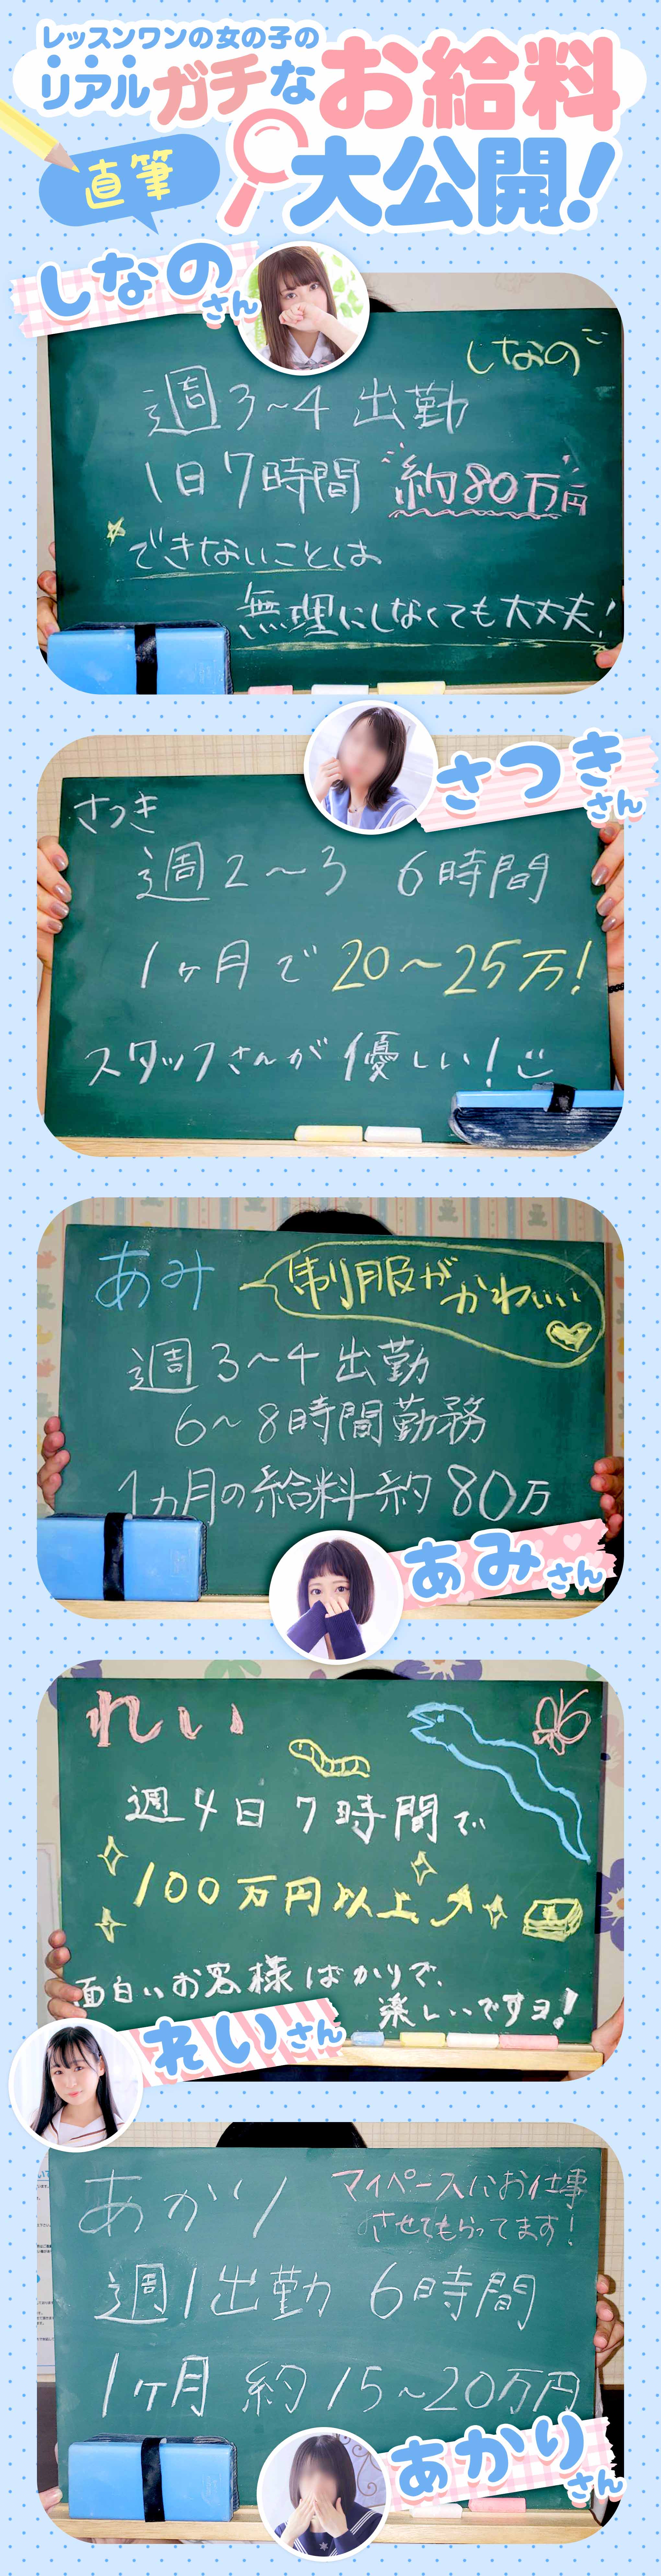 レッスンワンの女の子の
リアルガチなお給料
直筆
大公開!
しなのさん
しなの
週3~4 出勤
1日7時間 約80万円
できないことは
無理にしなくても大丈夫!
さつきさん
さつき
週2~3 6時間
1ヶ月で20~25万!
スタッフさんが優しい!
あみ
制服がかわいい
週3~4出勤
6~8時間勤務
1カ月の給料約80万
あみさん
れい
週4日7時間で
100万円以上
面白いお客様ばかりで、
楽しいですヨ!
れいさん
あかり
マイペースにお仕事
させてもらってます!
週1出勤 6時間
1ヶ月 約15~20万円
あかりさん